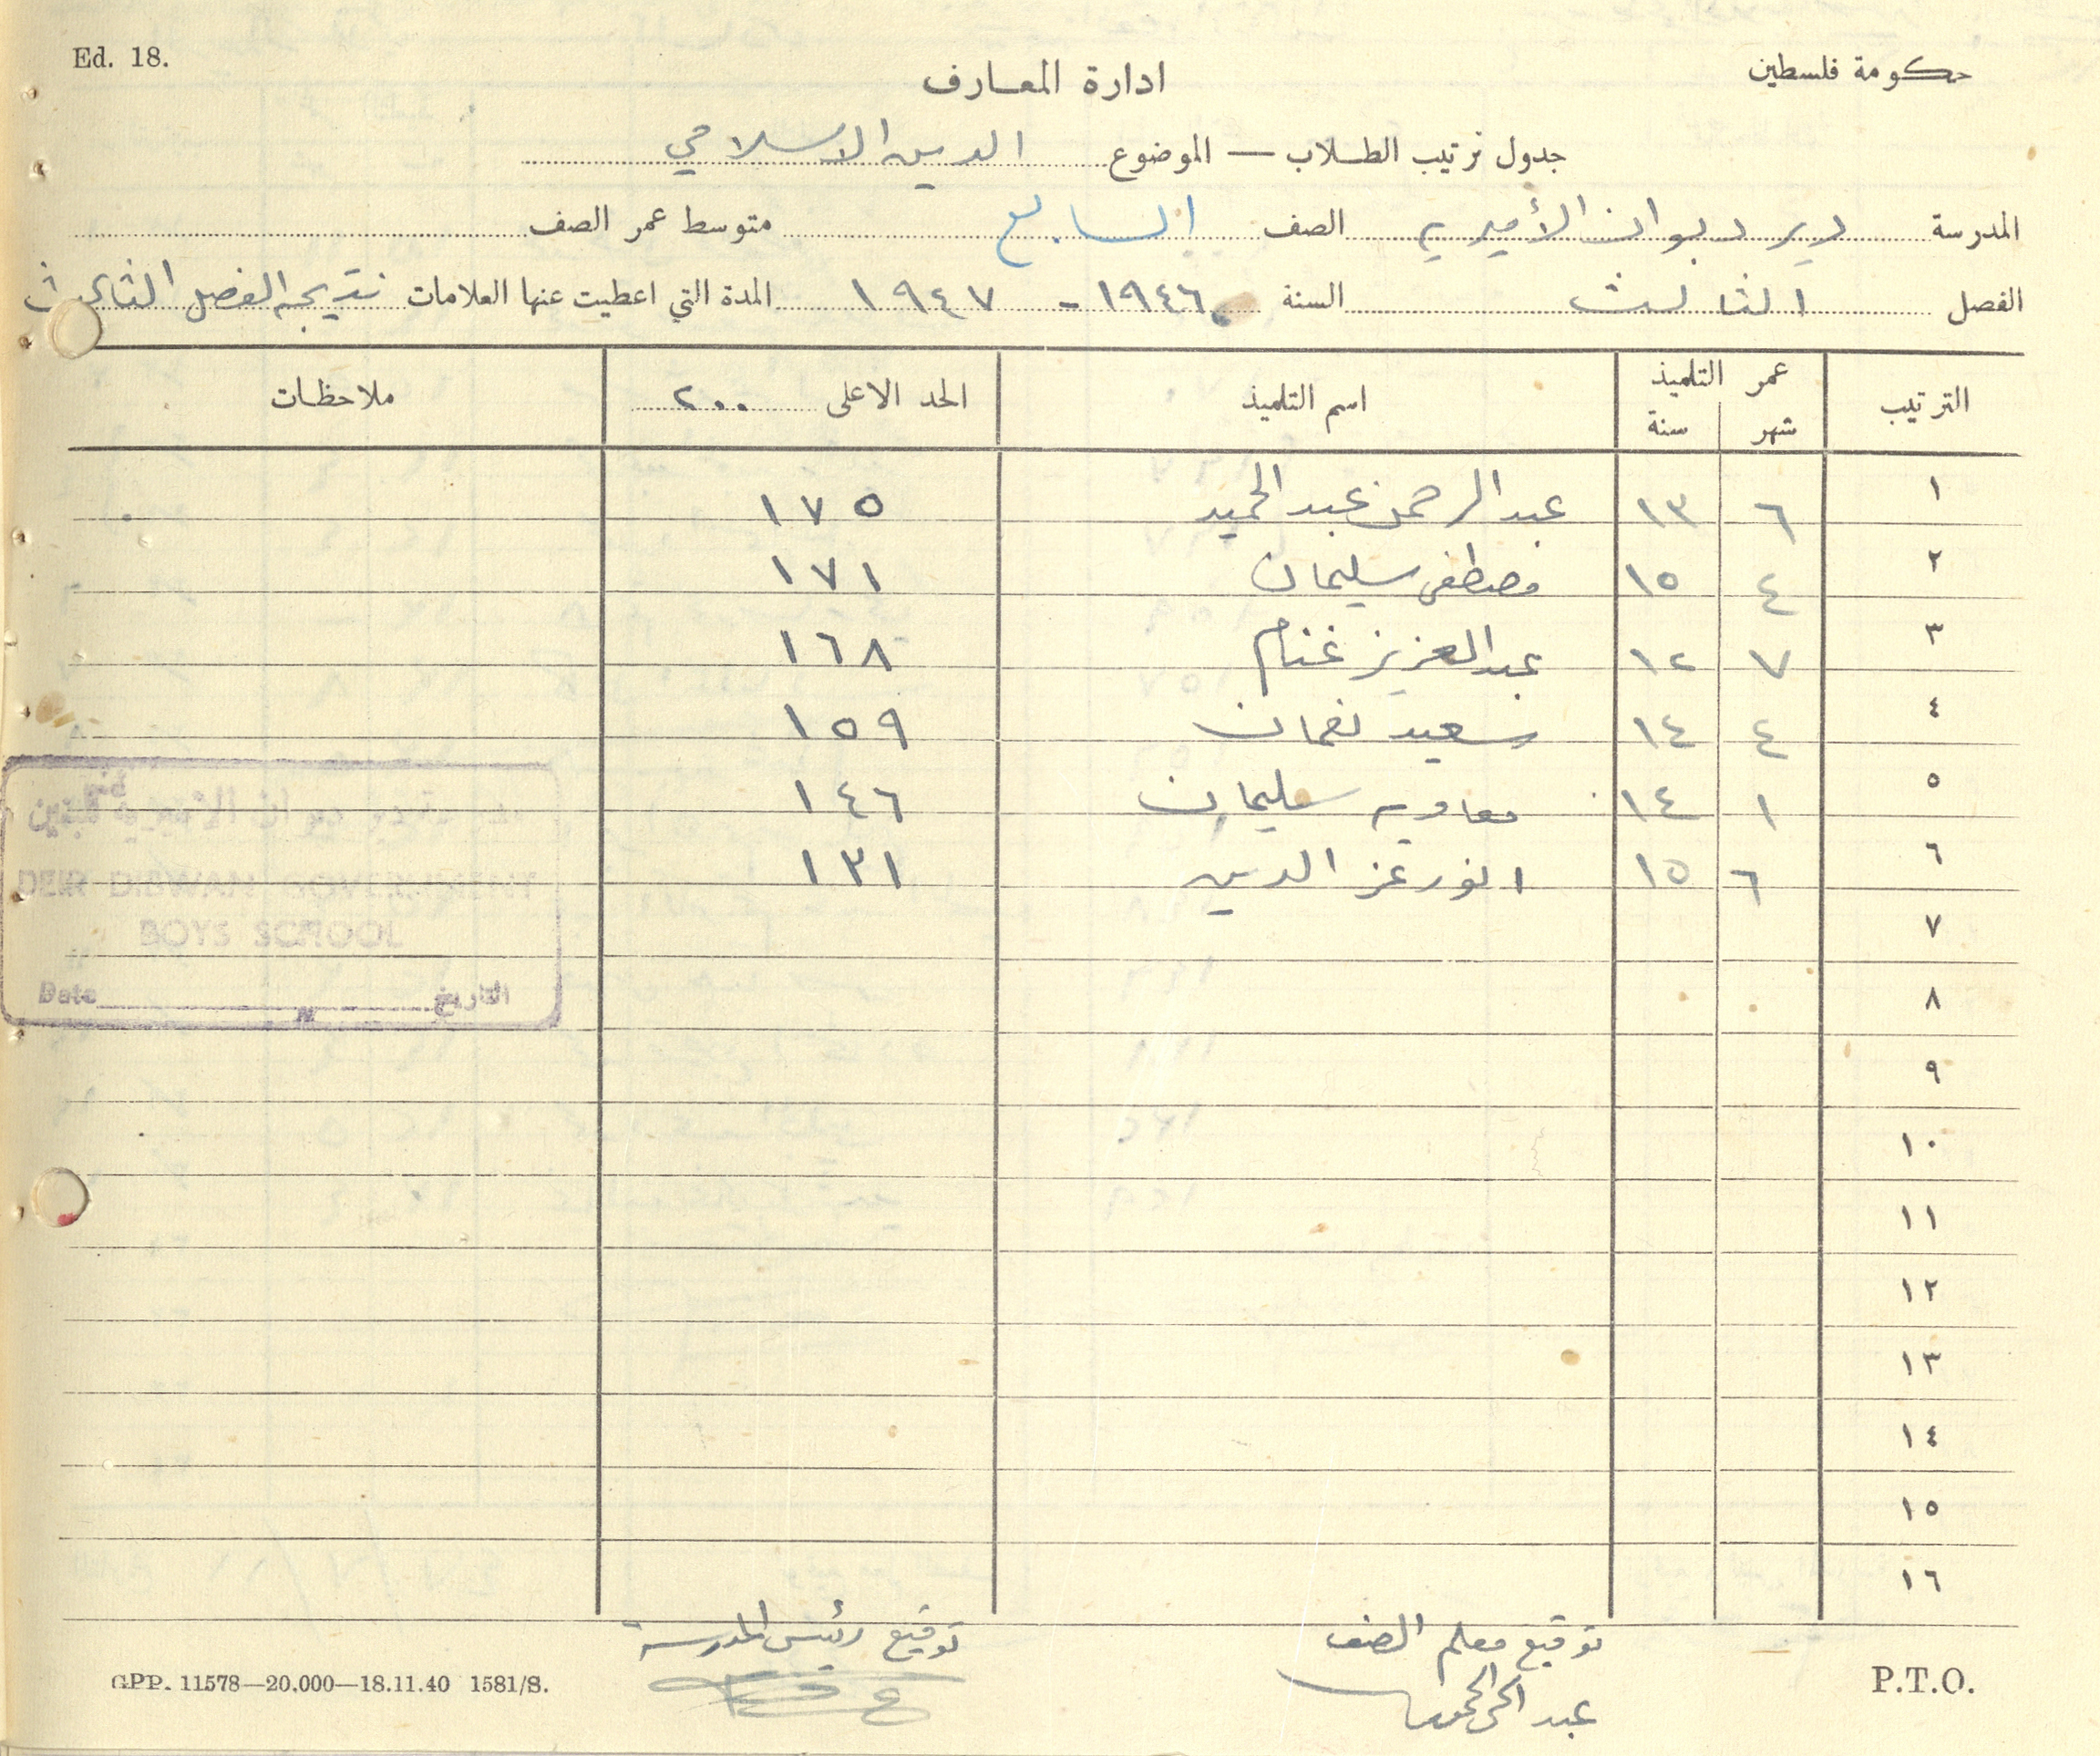 Ed. 18.
حكومة فلسطين
ادارة المعارف
جدول ترتيب الطلاب — الموضوع الدين الاسلامي
المدرسة دير دبوان الأميرية الصف السابع متوسط عمر الصف
الفصل الثالث السنة ١٩٤٦ - ١٩٤٧ المدة التي اعطيت عنها العلامات نتيجة الفصل الثالث
الترتيب عمر التلميذ شهر سنة اسم التلميذ الحد الاعلى ٢٠٠ ملاحظات
١ ٦ ١٣ عبد الرحمن عبد الحميد ١٧٥
٢ ٤ ١٥ مصطفى سليمان ١٧١
٣ ٧ ١٢ عبد العزيز غنام ١٦٨
٤ ٤ ١٤ سعيد نعمان ١٥٩
٥ ١ ١٤ معاويه سليمان ١٤٦
٦ ٦ ١٥ انور عز الدين ١٣١
٧
٨
٩
١٠
١١
١٢
١٣
١٤
١٥
١٦
DEIR DIBWAN GOVERNMENT
BOYS SCHOOL
Date التاريخ
توقيع معلم الصف
توقيع رئيس المدرسة
GPP. 11578—20,000—18.11.40 1581/S.
P.T.O.